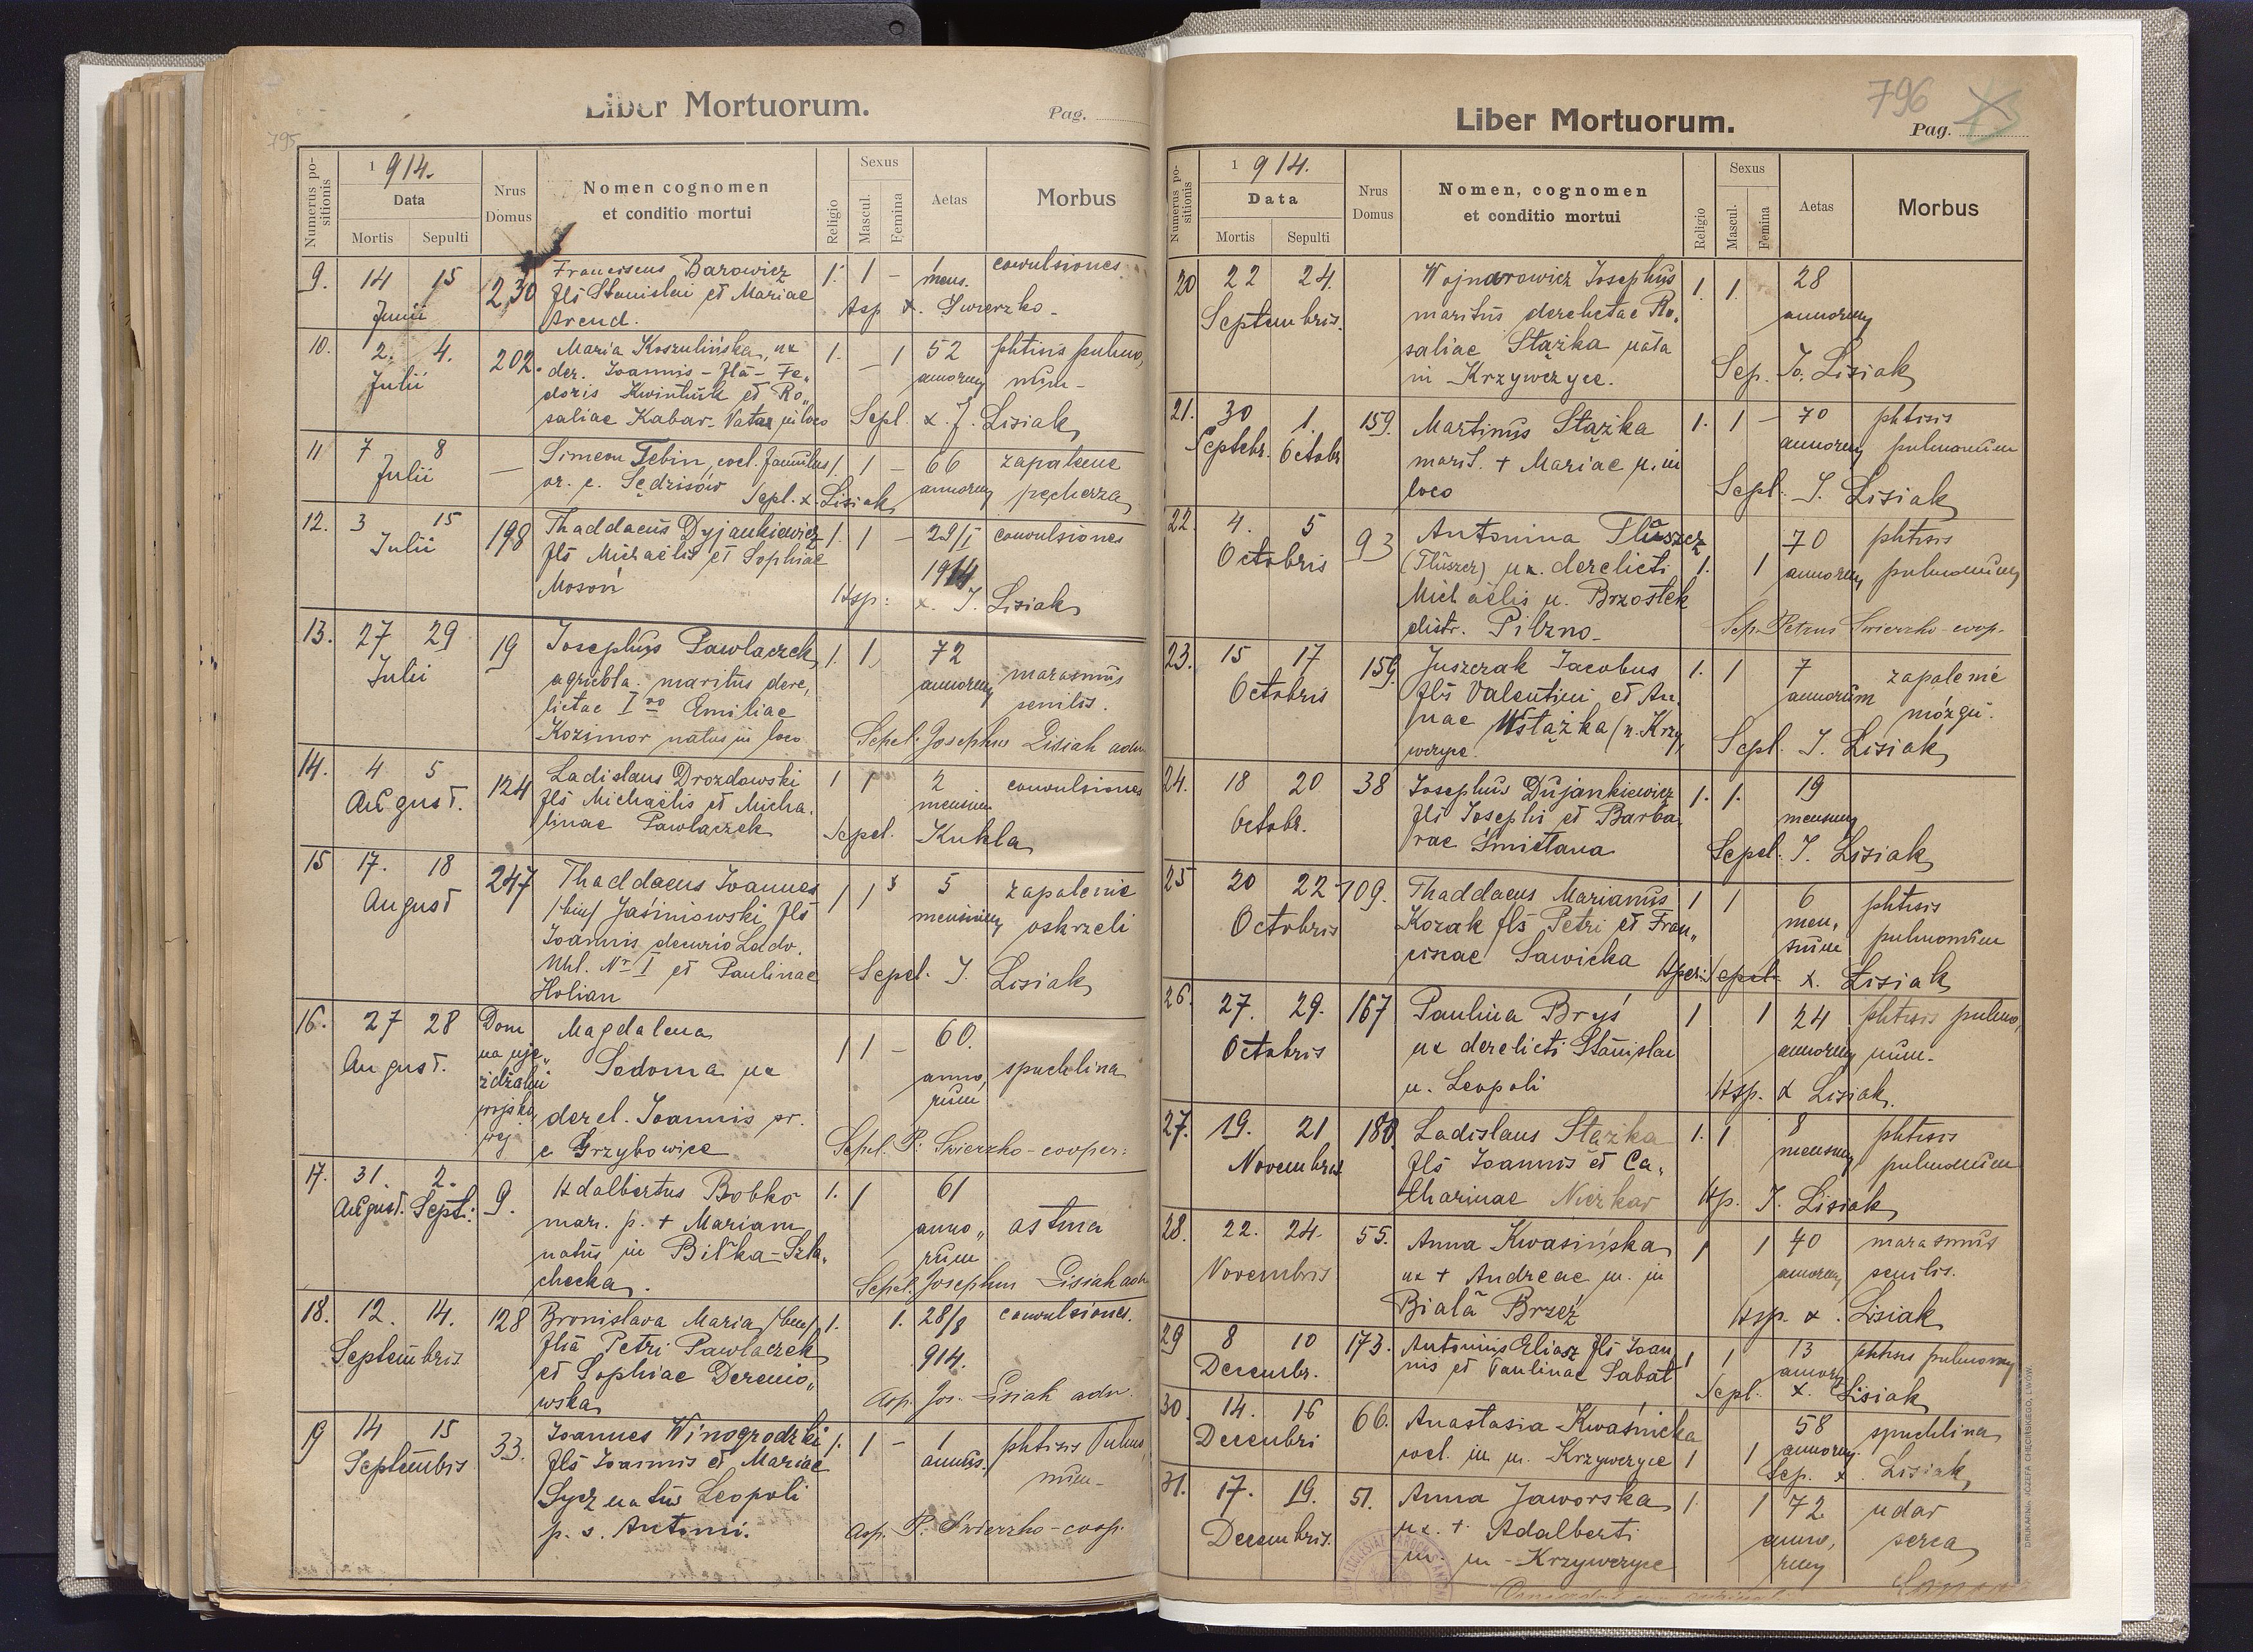 795
Liber Mortuorum.
Pag.
Numerus positionis
1914.
Data
Mortis Sepulti
Nrus Domus
Nomen cognomen
et conditio mortui
Religio
Sexus
Mascul. Femina
Aetas
Morbus
9. 14 15 230 Franciscus Barowicz 1. 1 – 1 convulsiones
Junii fls Stanislai et Mariae mens.
Arend. Asp x. Swierzko –
10. 2. 4. 202. Maria Koszulińska, ux 1. – 1 52 phtisis pulmo,
Julii der. Joannis – fla – Fe„ annorum num –
doris Kwintiuk et Ro„
saliae Kabar – Nata in loco Sepl. x. J. Lisiak
11 7 8 — Simeon Tebin, coel. famulus 1. 1 – 66 zapalenie
Julii or. e. Sędzisów annorum pęcherza
Sepl. x. Lisiak
12. 3 15 198 Thaddaeus Dyjankiewicz 1. 1 – 29/I convulsiones
Julii fls Michaëlis et Sophiae 1914
Mosoń Asp: x. J. Lisiak
13. 27 29 19 Josephus Pawlaczek 1. 1. 72 marasmus
Julii agricola. maritus dere, annorum senilis.
lictae I vo Emiliae
Kozimor natus in loco Sepel: Josephus Lisiak adm
14. 4 5 124 Ladislaus Drozdowski 1 1 2 convulsiones
August. fls Michaëlis et Micha. mensium
linae Pawlaczek Sepel. Kukla
15 17. 18 247 Thaddaeus Joannes 1 1 5 zapalenie
August /bin/ Jaśiniowski fls mensium oskrzeli
Joannis decurio Ladv.
Uhl. Nr I et Paulinae Sepel. J. Lisiak
Holian
16. 27 28 Dom Magdalena 1 1 – 60. spuchlina
August. na uje„ Sodoma ux anno,
żdżalni derel. Joannis or. rum
wojsko
wej e Grzybowice Sepel. P. Swierzko – cooper:
17. 31. 2. 9. Adalbertus Bobko 1. 1 61 astma
August. Sept: mar. p. + Mariam anno„
natus in Biłka – Szla, rum
checka. Sepel. Josephus Lisiak adm
18. 12. 14. 128 Bronislava Maria /bin/ 1. 1. 28/8 convulsiones.
Septembris fla Petri Pawlaczek 914.
et Sophiae Derenio„
wska Asp. Jos. Lisiak adm.
19 14 15 33. Joannes Winogrodzki 1. 1 – 1 phtisis Pulmo,
Septembis fls Joannis et Mariae annus. num –
Sycz natus Leopoli
p. s. Antoni. Asp. P. Swierzko – coop.
796
Liber Mortuorum.
Pag.
Numerus positionis
1914.
Data
Mortis Sepulti
Nrus Domus
Nomen, cognomen
et conditio mortui
Religio
Sexus
Mascul. Femina
Aetas
Morbus
20 22 24. Wojnarowicz Josephus 1. 1. 28
Septembris. maritus derelictae Ro, annorum
saliae Stążka nata
in Krzywczyce. Sep. Jo. Lisiak
21. 30 1. 159. Martinus Stążka 1. 1 – 70 phtisis
Septebr. Octobr marit. + Mariae n. in annorum pulmonum
loco Sepl. J. Lisiak
22. 4. 5 93 Antonina Tłuszcz 70 phtisis
Octobris (Tłuszcz) ux. derelicti 1. 1 annorum pulmonum
Michaëlis n. Brzostek
distr. Pilzno – Sep. Petrus Swierzko – coop.
23. 15 17 159 Juszczak Jacobus 1. 1 7 zapalenie
Octobris fls Valentini et An, annorum mózgu.
nae Wstążka (n. Krzy,
wczyce. Sepl. J. Lisiak
24. 18 20 38 Josephus Dujankiewicz 1. 1. 19
Octobr. fls Josephi et Barba, mensium
rae Śmietana Sepel. J. Lisiak
25 20 22 109. Thaddaeus Marianus 1 1 6 phtisis
Octobris Kozak fls Petri et Fran„ men, pulmonum
ciscae Sawicka sium
Asper: Sepel x. Lisiak
26. 27. 29. 167 Paulina Bryś 1 1 24 phtisis pulmo,
Octobris ux derelicti Stanislai annorum num –
n. Leopoli Asp. x Lisiak.
27. 19. 21 180 Ladislaus Stążka 1. 1 8 phtisis
Novembris fls Joannis et Ca, mensium pulmonum
tharinae Nieżkar Asp. J. Lisiak
28. 22. 24. 55. Anna Kwasińska 1 1 70 marasmus
Novembris ux + Andreae n. in annorum senilis.
Białã Brzeź Asp. x. Lisiak
29 8 10 173. Antonius Eliasz fls Joan 1 1 13 phtisis pulmonum
Decembr. nis et Paulinae Sabat annor
Sepl. x. Lisiak
30. 14. 16 66. Anastasia Kwaśnicka 58 spuchlina
Decembri coel. in n. Krzywczyce 1 1 annorum.
Sep. x. Lisiak
31. 17. 19. 51. Anna Jaworska 1. 1 72 udar
Decembris. ux. + Adalberti anno, serca
n. in – Krzywczyce rum
DRUKARNIA JÓZEFA CHĘCIŃSKIEGO, LWÓW.